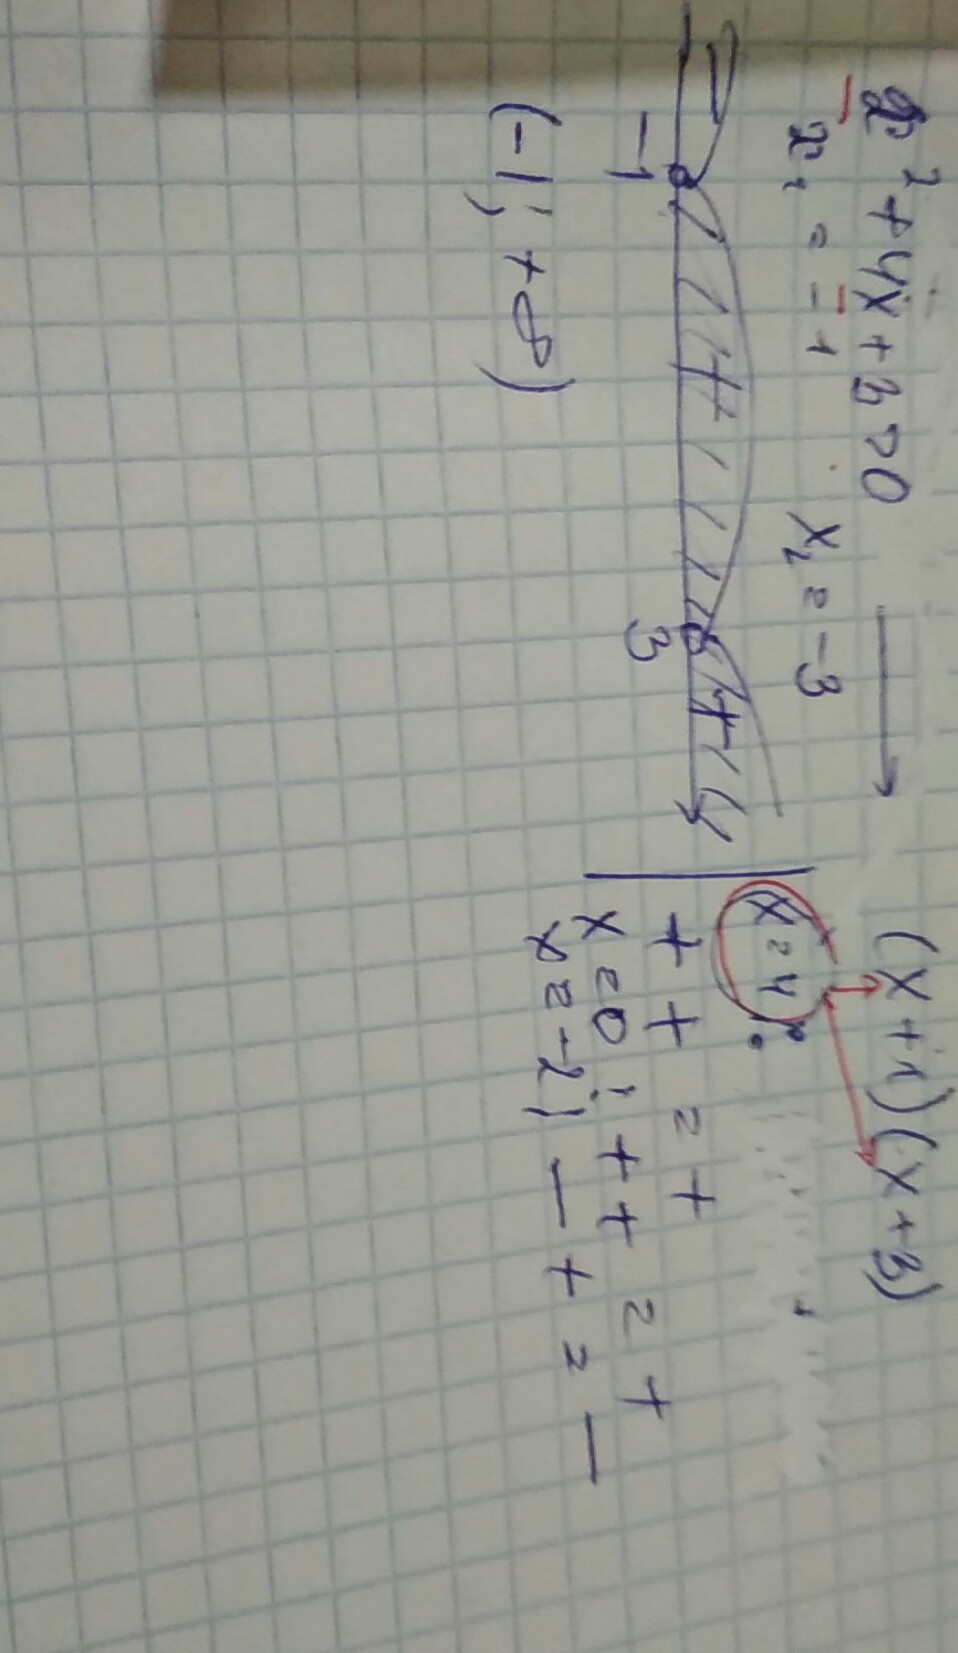 x² + 4x + 3 > 0 → (x + 1)(x + 3)
x₁ = -1 x₂ = -3
x = 4:
- + +
+ + = +
-1 3
x = 0; + + = +
x = -2; - + = -
(-1; +∞)